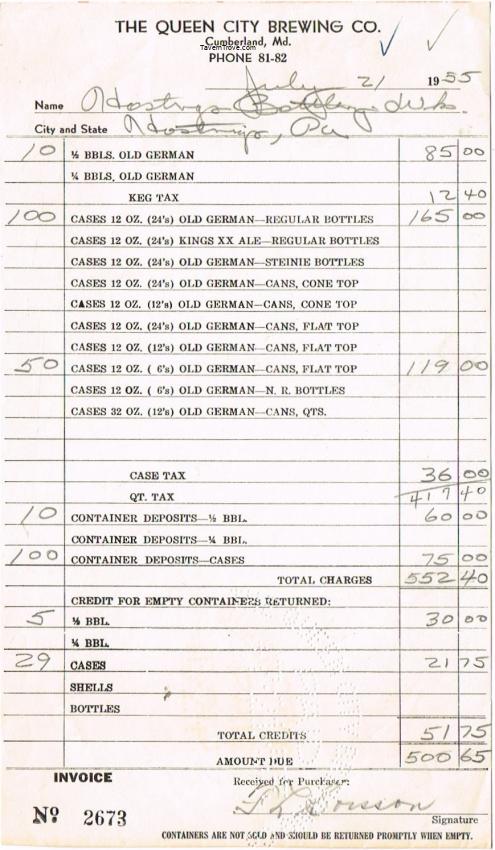 THE QUEEN CITY BREWING CO.
Cumberland, Md.
TavernTrove.com
PHONE 81-82
July 21 1955
Name Hastings Bottling Wks.
City and State Hastings, Pa
10 ½ BBLS. OLD GERMAN 85 00
¼ BBLS, OLD GERMAN
KEG TAX 12 40
100 CASES 12 OZ. (24's) OLD GERMAN—REGULAR BOTTLES 165 00
CASES 12 OZ. (24's) KINGS XX ALE—REGULAR BOTTLES
CASES 12 OZ. (24's) OLD GERMAN—STEINIE BOTTLES
CASES 12 OZ. (24's) OLD GERMAN—CANS, CONE TOP
CASES 12 OZ. (12's) OLD GERMAN—CANS, CONE TOP
CASES 12 OZ. (24's) OLD GERMAN—CANS, FLAT TOP
CASES 12 OZ. (12's) OLD GERMAN—CANS, FLAT TOP
50 CASES 12 OZ. ( 6's) OLD GERMAN—CANS, FLAT TOP 119 00
CASES 12 OZ. ( 6's) OLD GERMAN—N. R. BOTTLES
CASES 32 OZ. (12's) OLD GERMAN—CANS, QTS.
CASE TAX 36 00
QT. TAX 417 40
10 CONTAINER DEPOSITS—½ BBL. 60 00
CONTAINER DEPOSITS—¼ BBL.
100 CONTAINER DEPOSITS—CASES 75 00
TOTAL CHARGES 552 40
CREDIT FOR EMPTY CONTAINERS RETURNED:
5 ½ BBL. 30 00
¼ BBL.
29 CASES 21 75
SHELLS
BOTTLES
TOTAL CREDITS 51 75
AMOUNT DUE 500 65
INVOICE Received for Purchaser:
No 2673
Signature
CONTAINERS ARE NOT SOLD AND SHOULD BE RETURNED PROMPTLY WHEN EMPTY.